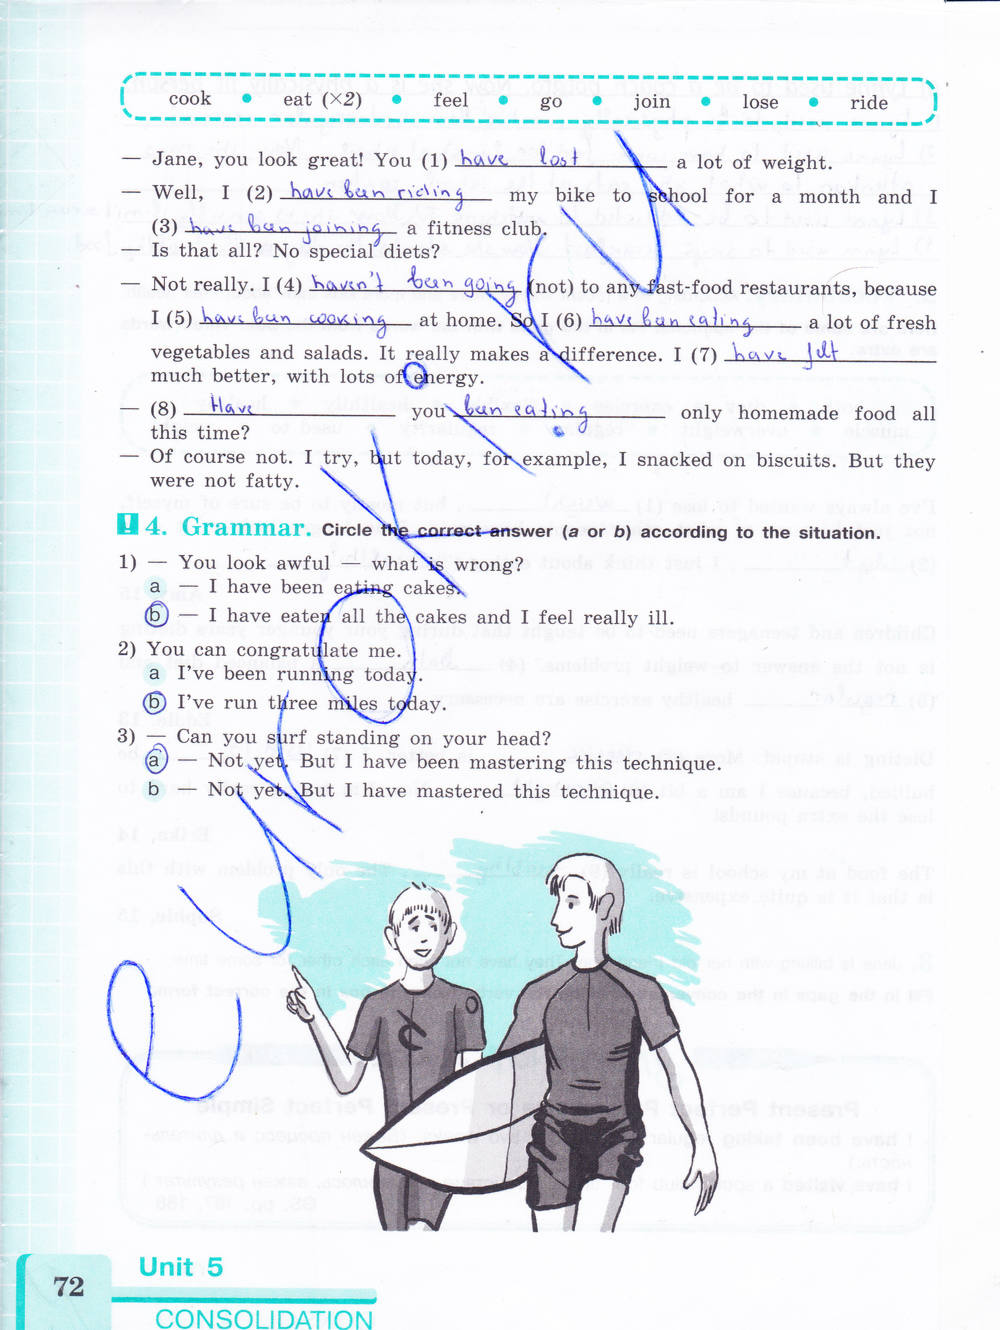 cook • eat (×2) • feel • go • join • lose • ride
— Jane, you look great! You (1) have lost a lot of weight.
— Well, I (2) have been riding my bike to school for a month and I
(3) have been joining a fitness club.
— Is that all? No special diets?
— Not really. I (4) haven't been going (not) to any fast-food restaurants, because
I (5) have been cooking at home. So I (6) have been eating a lot of fresh
vegetables and salads. It really makes a difference. I (7) have felt
much better, with lots of energy.
— (8) Have you been eating only homemade food all
this time?
— Of course not. I try, but today, for example, I snacked on biscuits. But they
were not fatty.
! 4. Grammar. Circle the correct answer (a or b) according to the situation.
1) — You look awful — what is wrong?
a — I have been eating cakes.
b — I have eaten all the cakes and I feel really ill.
2) You can congratulate me.
a I've been running today.
b I've run three miles today.
3) — Can you surf standing on your head?
a — Not yet. But I have been mastering this technique.
b — Not yet. But I have mastered this technique.
72
Unit 5
CONSOLIDATION